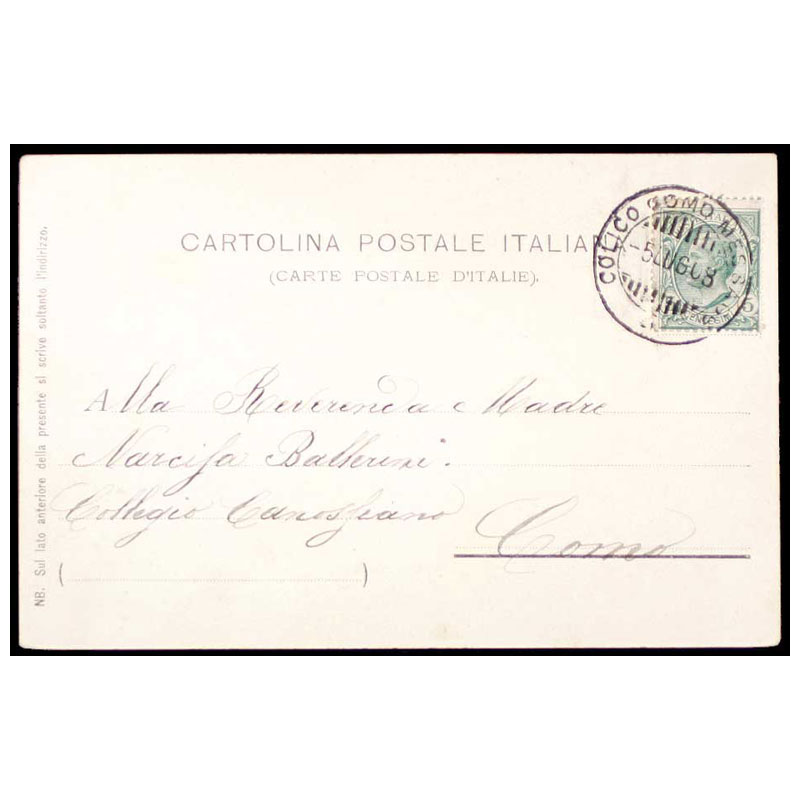 CARTOLINA POSTALE ITALIAN
(CARTE POSTALE D'ITALIE).
COLICO COMO MESSAG
-5 LUG 08
5
Alla Reverenda e Madre
Narcisa Ballerini.
Collegio Canossiano
Como
(                    )
NB. Sul lato anteriore della presente si scrive soltanto l'indirizzo.